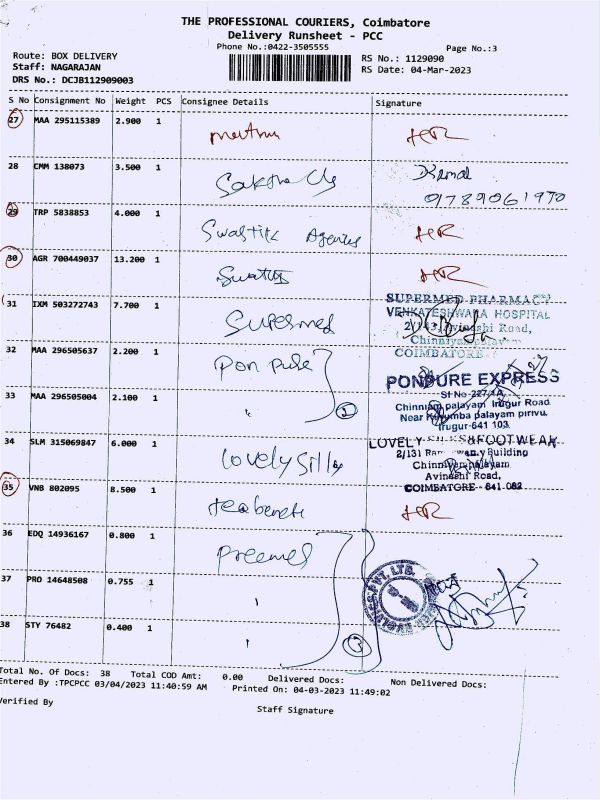 THE PROFESSIONAL COURIERS, Coimbatore
Delivery Runsheet - PCC
Phone No.:0422-3505555 Page No.:3
Route: BOX DELIVERY RS No.: 1129090
Staff: NAGARAJAN RS Date: 04-Mar-2023
DRS No.: DCJB112909003
S No Consignment No Weight PCS Consignee Details Signature
27 MAA 295115389 2.900 1
28 CMM 138073 3.500 1
29 TRP 5838853 4.000 1 Swastik Agencies
30 AGR 700449037 13.200 1
31 IXM 503272743 7.700 1 Supermed
SUPERMED PHARMACY
VENKATESHWARA HOSPITAL
2/143, Avinashi Road,
COIMBATORE
32 MAA 296505637 2.200 1 Pon Pure
PONPURE EXPRESS
33 MAA 296505004 2.100 1 " 2
Chinniam palayam Irugur Road
Near Kulumba palayam pirivu
Irugur-641 103
34 SLM 315069847 6.000 1 Lovely Silks
LOVELY SILKS &FOOTWEAR
2/131 Building
Chinniyampalayam
Avinashi Road,
COIMBATORE - 641 062
35 VNB 802095 8.500 1
36 EDQ 14936167 0.800 1
37 PRO 14648508 0.755 1
38 STY 76482 0.400 1 3
Total No. Of Docs: 38 Total COD Amt: 0.00 Delivered Docs: Non Delivered Docs:
Entered By :TPCPCC 03/04/2023 11:40:59 AM Printed On: 04-03-2023 11:49:02
Verified By Staff Signature